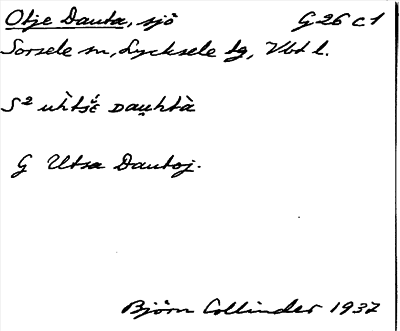 Otje Dauta, sjö G 26 c 1
Sorsele sn, Lycksele tg, Vbt l.
S² ùhtsɛ̌ ᴅau̯htà
G Utsa Dautoj.
Björn Collinder 1937